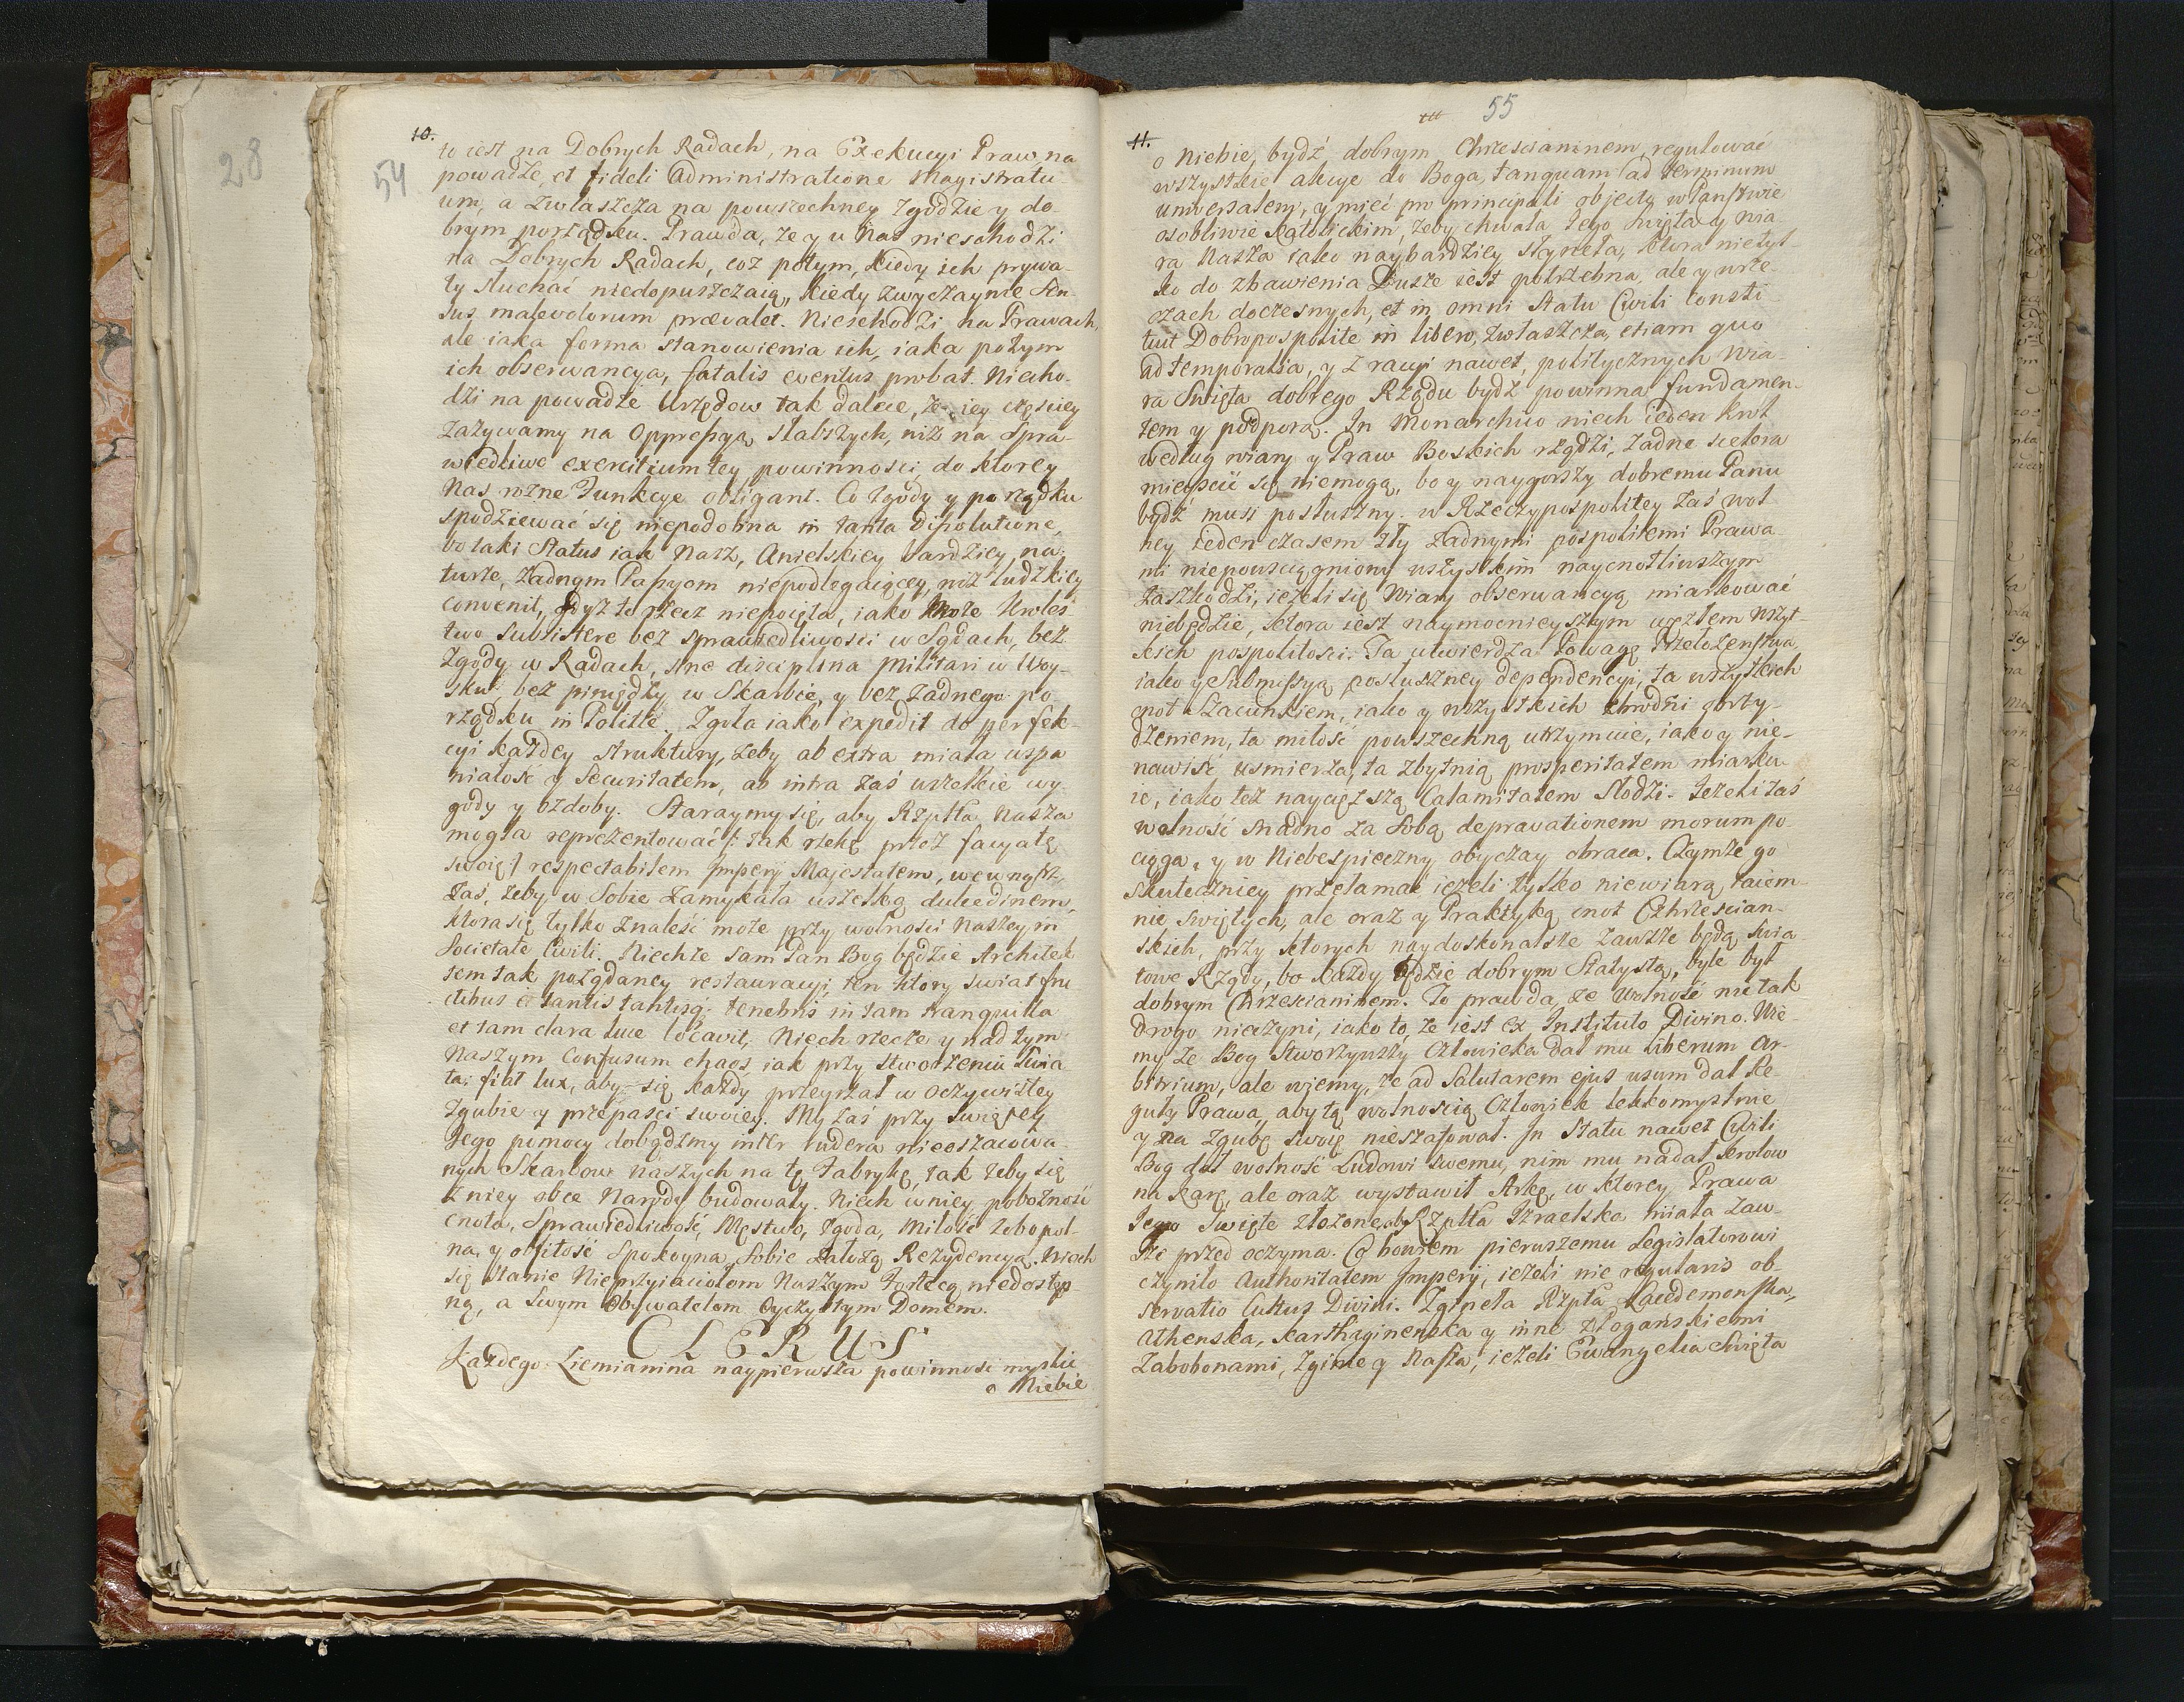 28
10.
54
to iest na Dobrych Radach, na Exekucyi Praw, na
powadze, et fideli Administratione Magistratu-
um, a zwłaszcza na powszechney zgodzie y do-
brym porządku. Prawda, że y u Nas nieschodzi
na Dobrych Radach, coż potym, kiedy ich prywa-
ty słuchać niedopuszczaią, kiedy zwyczaynie Sen-
sus malevolorum prævalet. Nieschodzi na Prawach,
ale iaka forma stanowienia ich, iaka potym
ich obserwancya, fatalis eventus probat. Niecho-
dzi na powadze Urzędow tak dalece, że iey częsciey
zażywamy na Oppressyą słabszych, niż na Spra-
wiedliwe exercitium tey powinnosci, do ktorey
Nas rożne Funkcye obligant. Co zgody y porządku
spodziewać się niepodobna in tanta Dissolutione,
bo taki Status iak Nasz, Anielskiey bardziey na-
turze, żadnym Passyom niepodlegaiącey, niż ludzkiey
convenit, gdyż to rzecz niepoięta, iako może Kroles-
two subsistere bez sprawiedliwosci w Sądach, bez
Zgody w Radach, sine disciplina Militari w Woy-
sku, bez pieniędzy w Skarbie, y bez żadnego po-
rządku in Politie. Zgoła iako expedit do perfek-
cyi każdey struktury, żeby ab extra miała wspa-
niałość y Securitatem, ab intra zaś wszelkie wy-
gody y ozdoby. Staraymy się, aby Rzplta Nasza
mogła reprezentować /: tak rzekę przez facyatę
swoię :/ respectabilem Imperij Majestatem, wewnątrz
zaś, żeby w Sobie zamykała wszelką dulcedinem,
ktora się tylko znaleść może przy wolności Naszey in
Societate Civili. Niechże sam Pan Bog będzie Architek-
tem tak pożądaney restauracyi, ten ktory świat flu-
ctibus è tantis tantisq; tenebris in tam tranquilla
et tam clara luce locavit, Niech rzecze y nad tym
Naszym Confusum chaos, iak przy stworzeniu Swia-
ta: fiat lux, aby się każdy przeyrzał w oczywistey
zgubie y przepasci swoiey. My zaś przy Swiętey
Jego pomocy dobądźmy inter rudera nieoszacowa-
nych Skarbow naszych na tę Fabrykę, tak żeby się
z niey obce Narody budowały. Niech w niey pobożność
cnota, Sprawiedliwość, Męstwo, Zgoda, Miłość Zobopol-
na, y obfitość Spokoyna, Sobie założą Rezydencyą. Niech
się stanie Nieprzyiaciołom Naszym Fortecą niedostęp-
ną, a Swym Obywatelom Oyczystym Domem.
CLERUS
Każdego Ziemianina naypierwsza powinność myslić
o Niebie
11.
55
o Niebie, bydź dobrym Chrzescianinem, regulować
wszystkie akcye do Boga, tanquam ad terminum
universalem, y mieć pro principali objecto w Panstwie
osobliwie Katolickim, żeby chwała Jego Swięta y wia-
ra Nasza iako naybardziey słynęła, ktora nietyl-
ko do zbawienia Dusze iest potrzebna, ale y w rze-
czach doczesnych, et in omni Statu Civili consti-
tuit Dobro pospolite in libero, zwłaszcza, etiam quo
ad temporalia, y z racyi nawet politycznych Wia-
ra Swięta dobrego Rządu bydź powinna fundamen-
tem y podporą. In Monarchico niech ieden krol
według wiary y Praw Boskich rządzi, żadne scelera
mieścić się niemogą, bo y naygorszy dobremu Panu
bydź musi posłuszny. w Rzeczypospolitey zaś wol-
ney ieden czasem zły żadnymi pospolitemi Prawa-
mi niepowsciągniony wszystkim naycnotliwszym
zaszkodzi, ieżeli się Wiary obserwancyą miarkować
niebędzie, ktora iest naymocnieyszym węzłem wszyt-
kich pospolitości. Ta utwierdza Powagę Przełożenstwa,
iako y Submissyą posłuszney dependencyi, ta wszystkich
cnot Szacunkiem, iako y wszystkich zbrodni obrzy-
dzeniem, ta miłość powszechną utrzymuie, iako y nie-
nawiść usmierza, ta zbytnią prosperitatem miarku-
ie, iako też naycięższą Calamitatem słodzi. Jeżeli zaś
wolność snadno za sobą depravationem morum po-
ciąga, y w Niebespieczny obyczay obraca. Czymże go
skuteczniey przełamać ieżeli tylko niewiarą taiem-
nic Swiętych, ale oraz y Praktyką cnot Chrzescian-
skich, przy ktorych naydoskonalsze zawsze będą Swia-
towe Rządy, bo każdy będzie dobrym Statystą, byle był
dobrym Chrzescianinem. To prawda, że Wolność nic tak
drogo nieczyni, iako to, że iest ex Instituto Divino. Wie-
my że Bog stworzywszy Człowieka dał mu liberum ar-
bitrium, ale wiemy, że ad Salutarem ejus usum dał Re-
guły Prawa, aby tą wolnoscią Człowiek lekkomyslnie
y na zgubę swoię nieszafował. In Statu nawet Civili
Bog dał wolność Ludowi Swemu, nim mu nadał krolow
na karę, ale oraz wystawił Arkę, w ktorey Prawa
Jego Swięte złożone, aby Rzplta Izraelska miała zaw-
sze przed oczyma. Co bowiem pierwszemu Legislatorowi
czyniło Authoritatem Imperij, ieżeli nie regularis ob-
servatio Cultus Divini. Zginęła Rzpta Lacedemonska,
Athenska, Karthaginenska y inne z Poganskiemi
Zabobonami, Zginie y Nasza, ieżeli Ewangelia Swięta